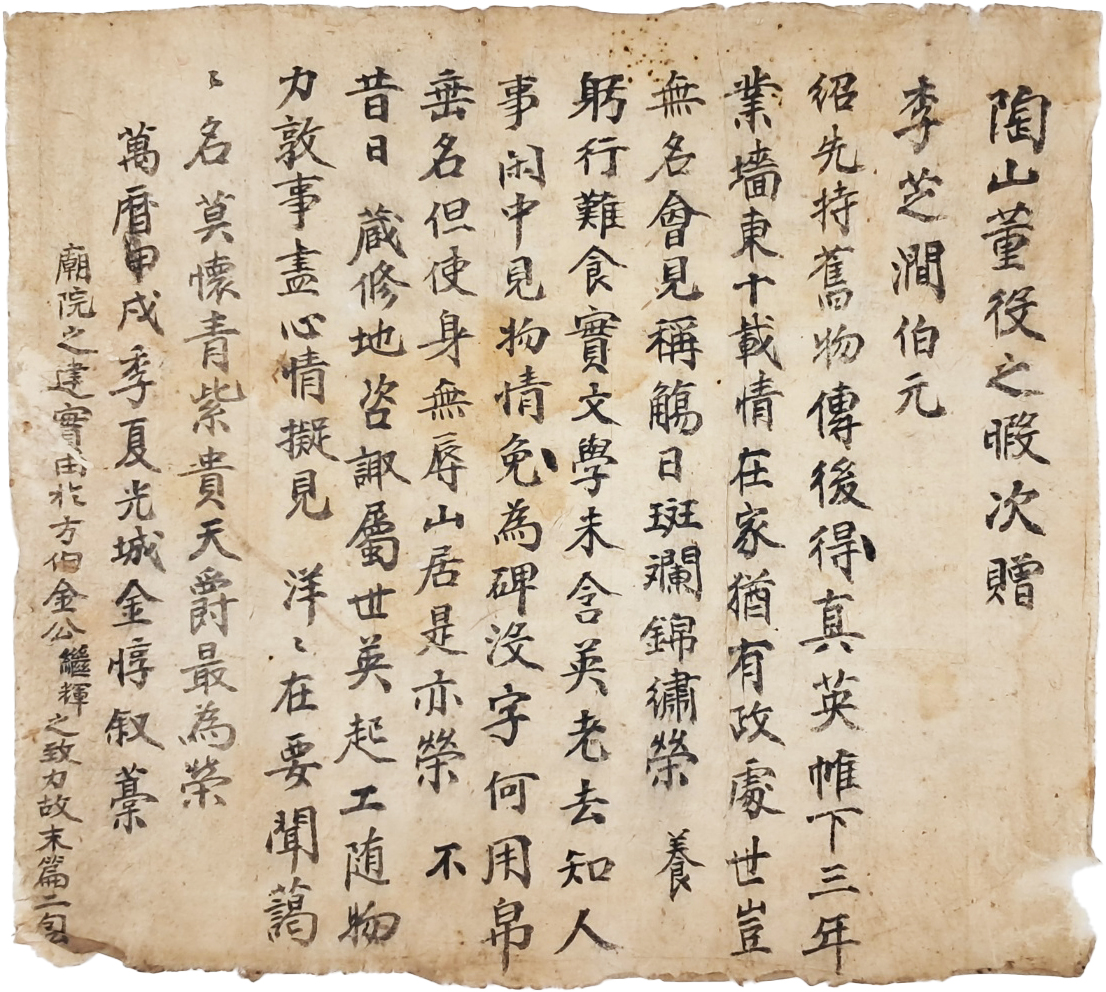 陶山董役之暇次贈
李芝澗伯元
紹先持舊物傳後得真英帷下三年
業墻東十載情在家猶有政處世豈
無名會見稱觴日斑斕錦繡榮 養
躬行難食實文學未含英老去知人
事闲中見物情免為碑沒字何用帛
垂名但使身無辱山居是亦榮 不
昔日 蔵修地咨諏屬世英起工随物
力敦事盡心情擬見 洋〻在要聞藹
〻名莫懷青紫貴天爵最為榮
萬曆甲戌季夏光城金惇叙藁
廟院之建實由於方伯金公繼輝之致力故末篇二句云